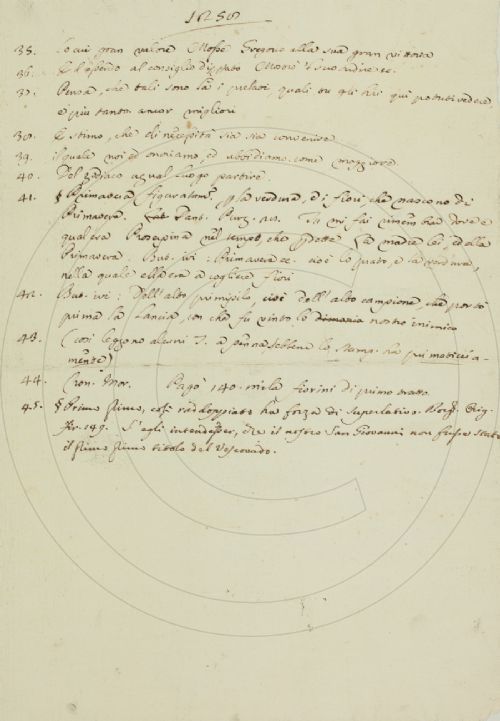 35. lo cui gran valore Mosse Gregoro alla sua gran vittoria
36. E d'essendo al consiglio
37. Pensa, che tali sono là i prelati quali tu gli hai qui potuti vedere
e più tanto ancor migliori
38. E stimo, che di necessità sia sia convenire
39. il quale noi ed onoriamo, ed ubbidiamo come maggiore
40. Del zodiaco a qual luogo partire
41. § Primavera figuratam. p la verdura, di fiori che nascono di
Primavera. Dant. Purg. 28. Tu mi fai rimembrar dove e
qual era Proserpina nel tempo, che perdette La madre lei, ed ella
Primavera. But. ivi: Primavera ec. cioè lo prato, e la verdura,
nella quale ella era a cogliere fiori
42. But. ivi: Dell'alto primipilo, cioè dell'alto campione, che portò
prima la lancia, con che fu vinto lo nostro inimico
43. (così leggono alcuni T. a penna sebbene lo stamp. ha
mente)
44. Cron. Mor. Pagò 140. mila fiorini di primo tratto
45. § Primo primo, così raddoppiato ha forza di superlativo. Borg. Orig.
Fir. 149. S'egli intendesser, che il nostro San Giovanni non fusse stato
il primo primo titolo del Vescovado.